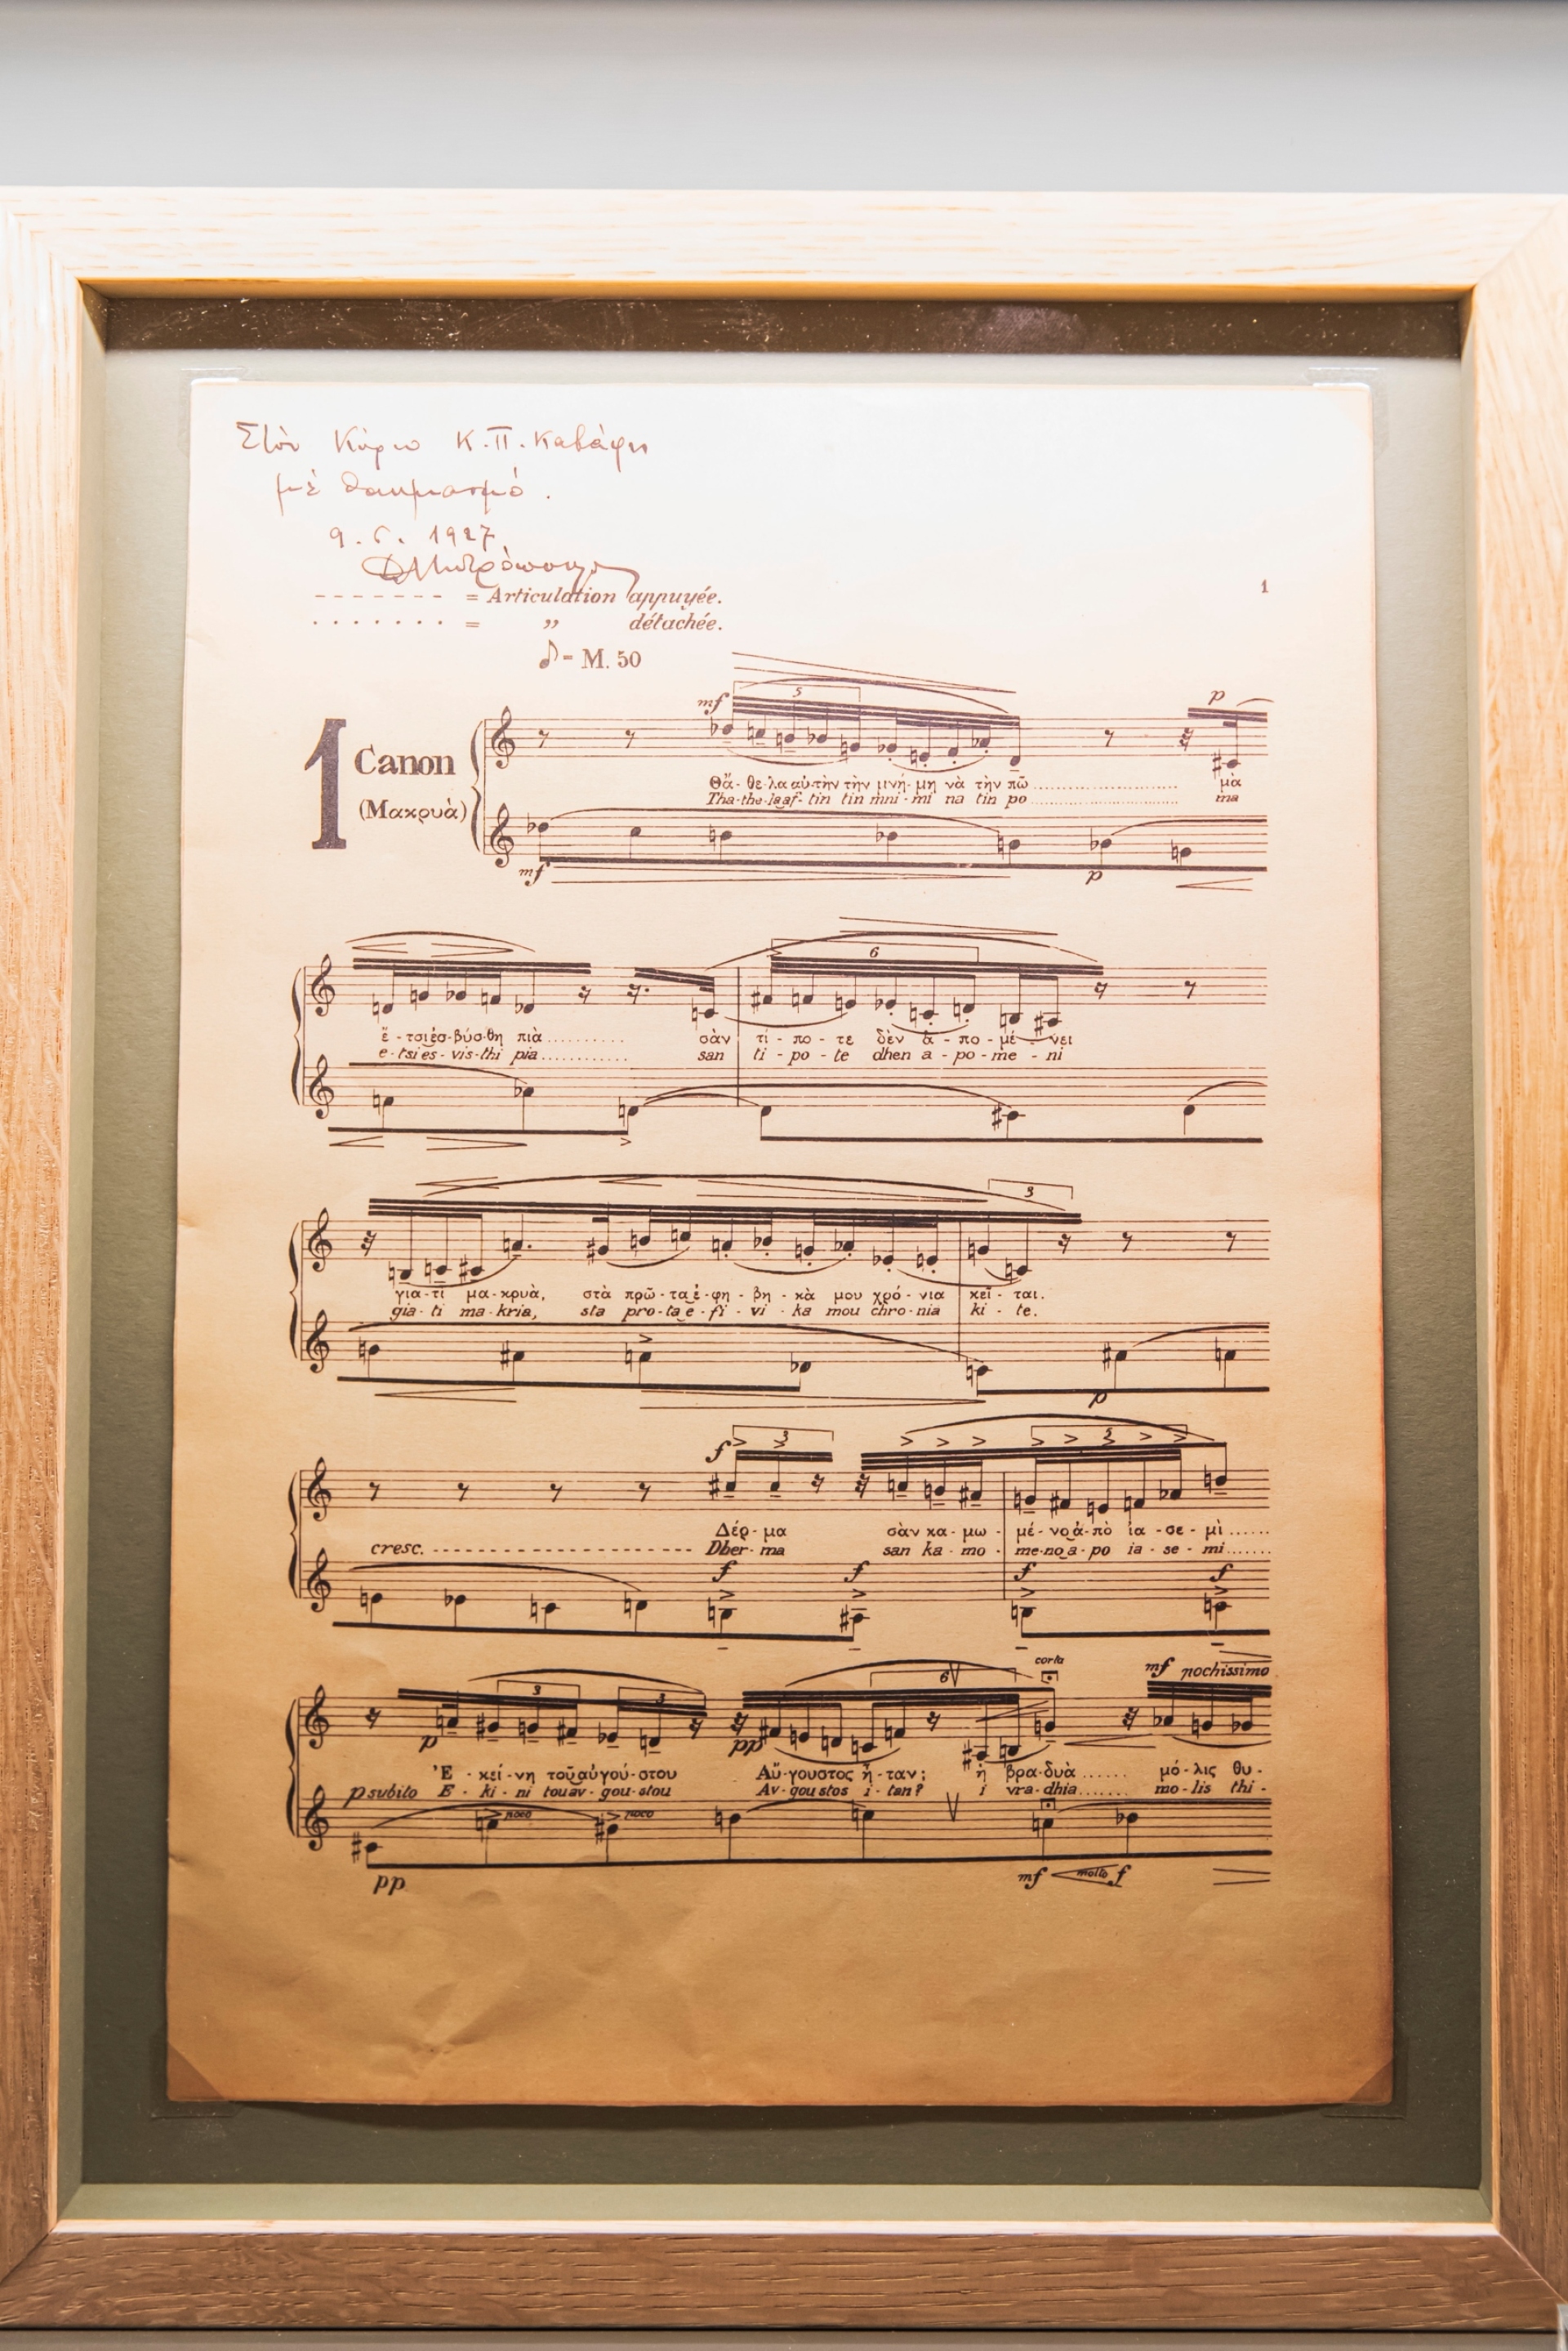 Στὸν Κύριο Κ.Π. Καβάφη
μὲ θαυμασμό.
9.6.1927
ΔΜητρόπουλος
= Articulation appuyée.
= „ détachée.
♪= M. 50
1
1
Canon
(Μακρυὰ)
mf 5 p
Θἄ-θε-λα αὐ-τὴν τὴν μνή-μη νὰ τὴν πῶ.......... μὰ
Tha-the-la af-tin tin mni-mi na tin po.......... ma
mf p
6
ἔ-τσι ἐσ-βύσ-θη πιὰ.......... σὰν τί-πο-τε δὲν ἀ-πο-μέ-νει
e-tsi es-vis-thi pia.......... san ti-po-te dhen a-po-me-ni
3
για-τὶ μα-κρυὰ, στὰ πρῶ-τα ἐ-φη-βη-κὰ μου χρό-νια κεῖ-ται.
gia-ti ma-kria, sta pro-ta e-fi-vi-ka mou chro-nia ki-te.
p
f 3 3
Δέρ-μα σὰν κα-μω-μέ-νο ἀ-πὸ ἰα-σε-μὶ......
cresc. Dher-ma san ka-mo-me-no a-po ia-se-mi.......
f f f f
corta
mf pochissimo
3 3 6
p pp
Ἐ-κεί-νη τοῦ αὐ-γού-στου Αὔ-γουστος ἦ-ταν; ἡ βρα-δυὰ...... μό-λις θυ-
p subito E-ki-ni tou av-gou-stou Av-goustos i-tan? i vra-dhia....... mo-lis thi-
poco poco
pp mf molto f